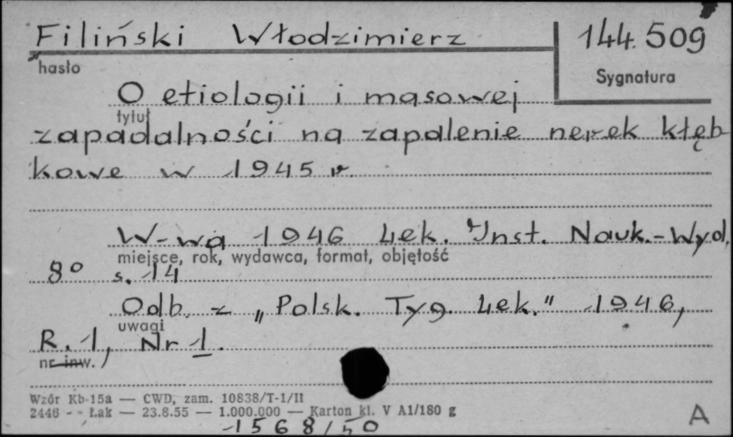 Filiński Włodzimierz
144.509
hasło
Sygnatura
O etiologii i masowej
tytuł
zapadalności na zapalenie nerek kłęb-
kowe w 1945 r.
W-wa 1946 Lek. Inst. Nauk.-Wyd.
miejsce, rok, wydawca, format, objętość
8° s. 14
Odb. z „Polsk. Tyg. Lek." 1946,
uwagi
R. 1, Nr 1.
nr inw.
Wzór Kb-15a — CWD, zam. 10838/T-1/II
2446 - Łak — 23.8.55 — 1.000.000 — Karton kl. V A1/180 g
1568/50
A